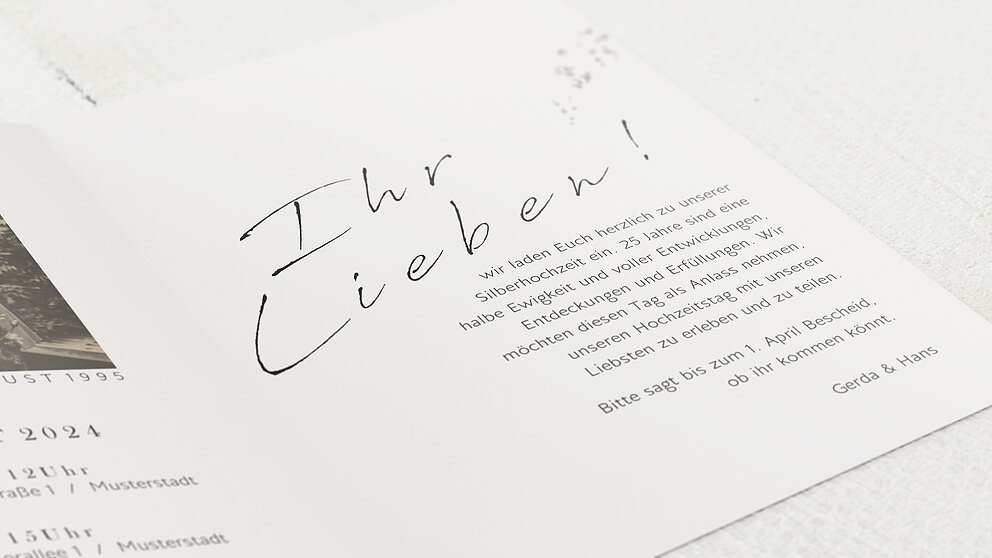 UST 1995
T 2024
12Uhr
raße 1 / Musterstadt
15Uhr
orallee 1 / Musterstadt
Ihr
Lieben!
wir laden Euch herzlich zu unserer
Silberhochzeit ein. 25 Jahre sind eine
halbe Ewigkeit und voller Entwicklungen,
Entdeckungen und Erfüllungen. Wir
möchten diesen Tag als Anlass nehmen,
unseren Hochzeitstag mit unseren
Liebsten zu erleben und zu teilen.
Bitte sagt bis zum 1. April Bescheid,
ob ihr kommen könnt.
Gerda & Hans